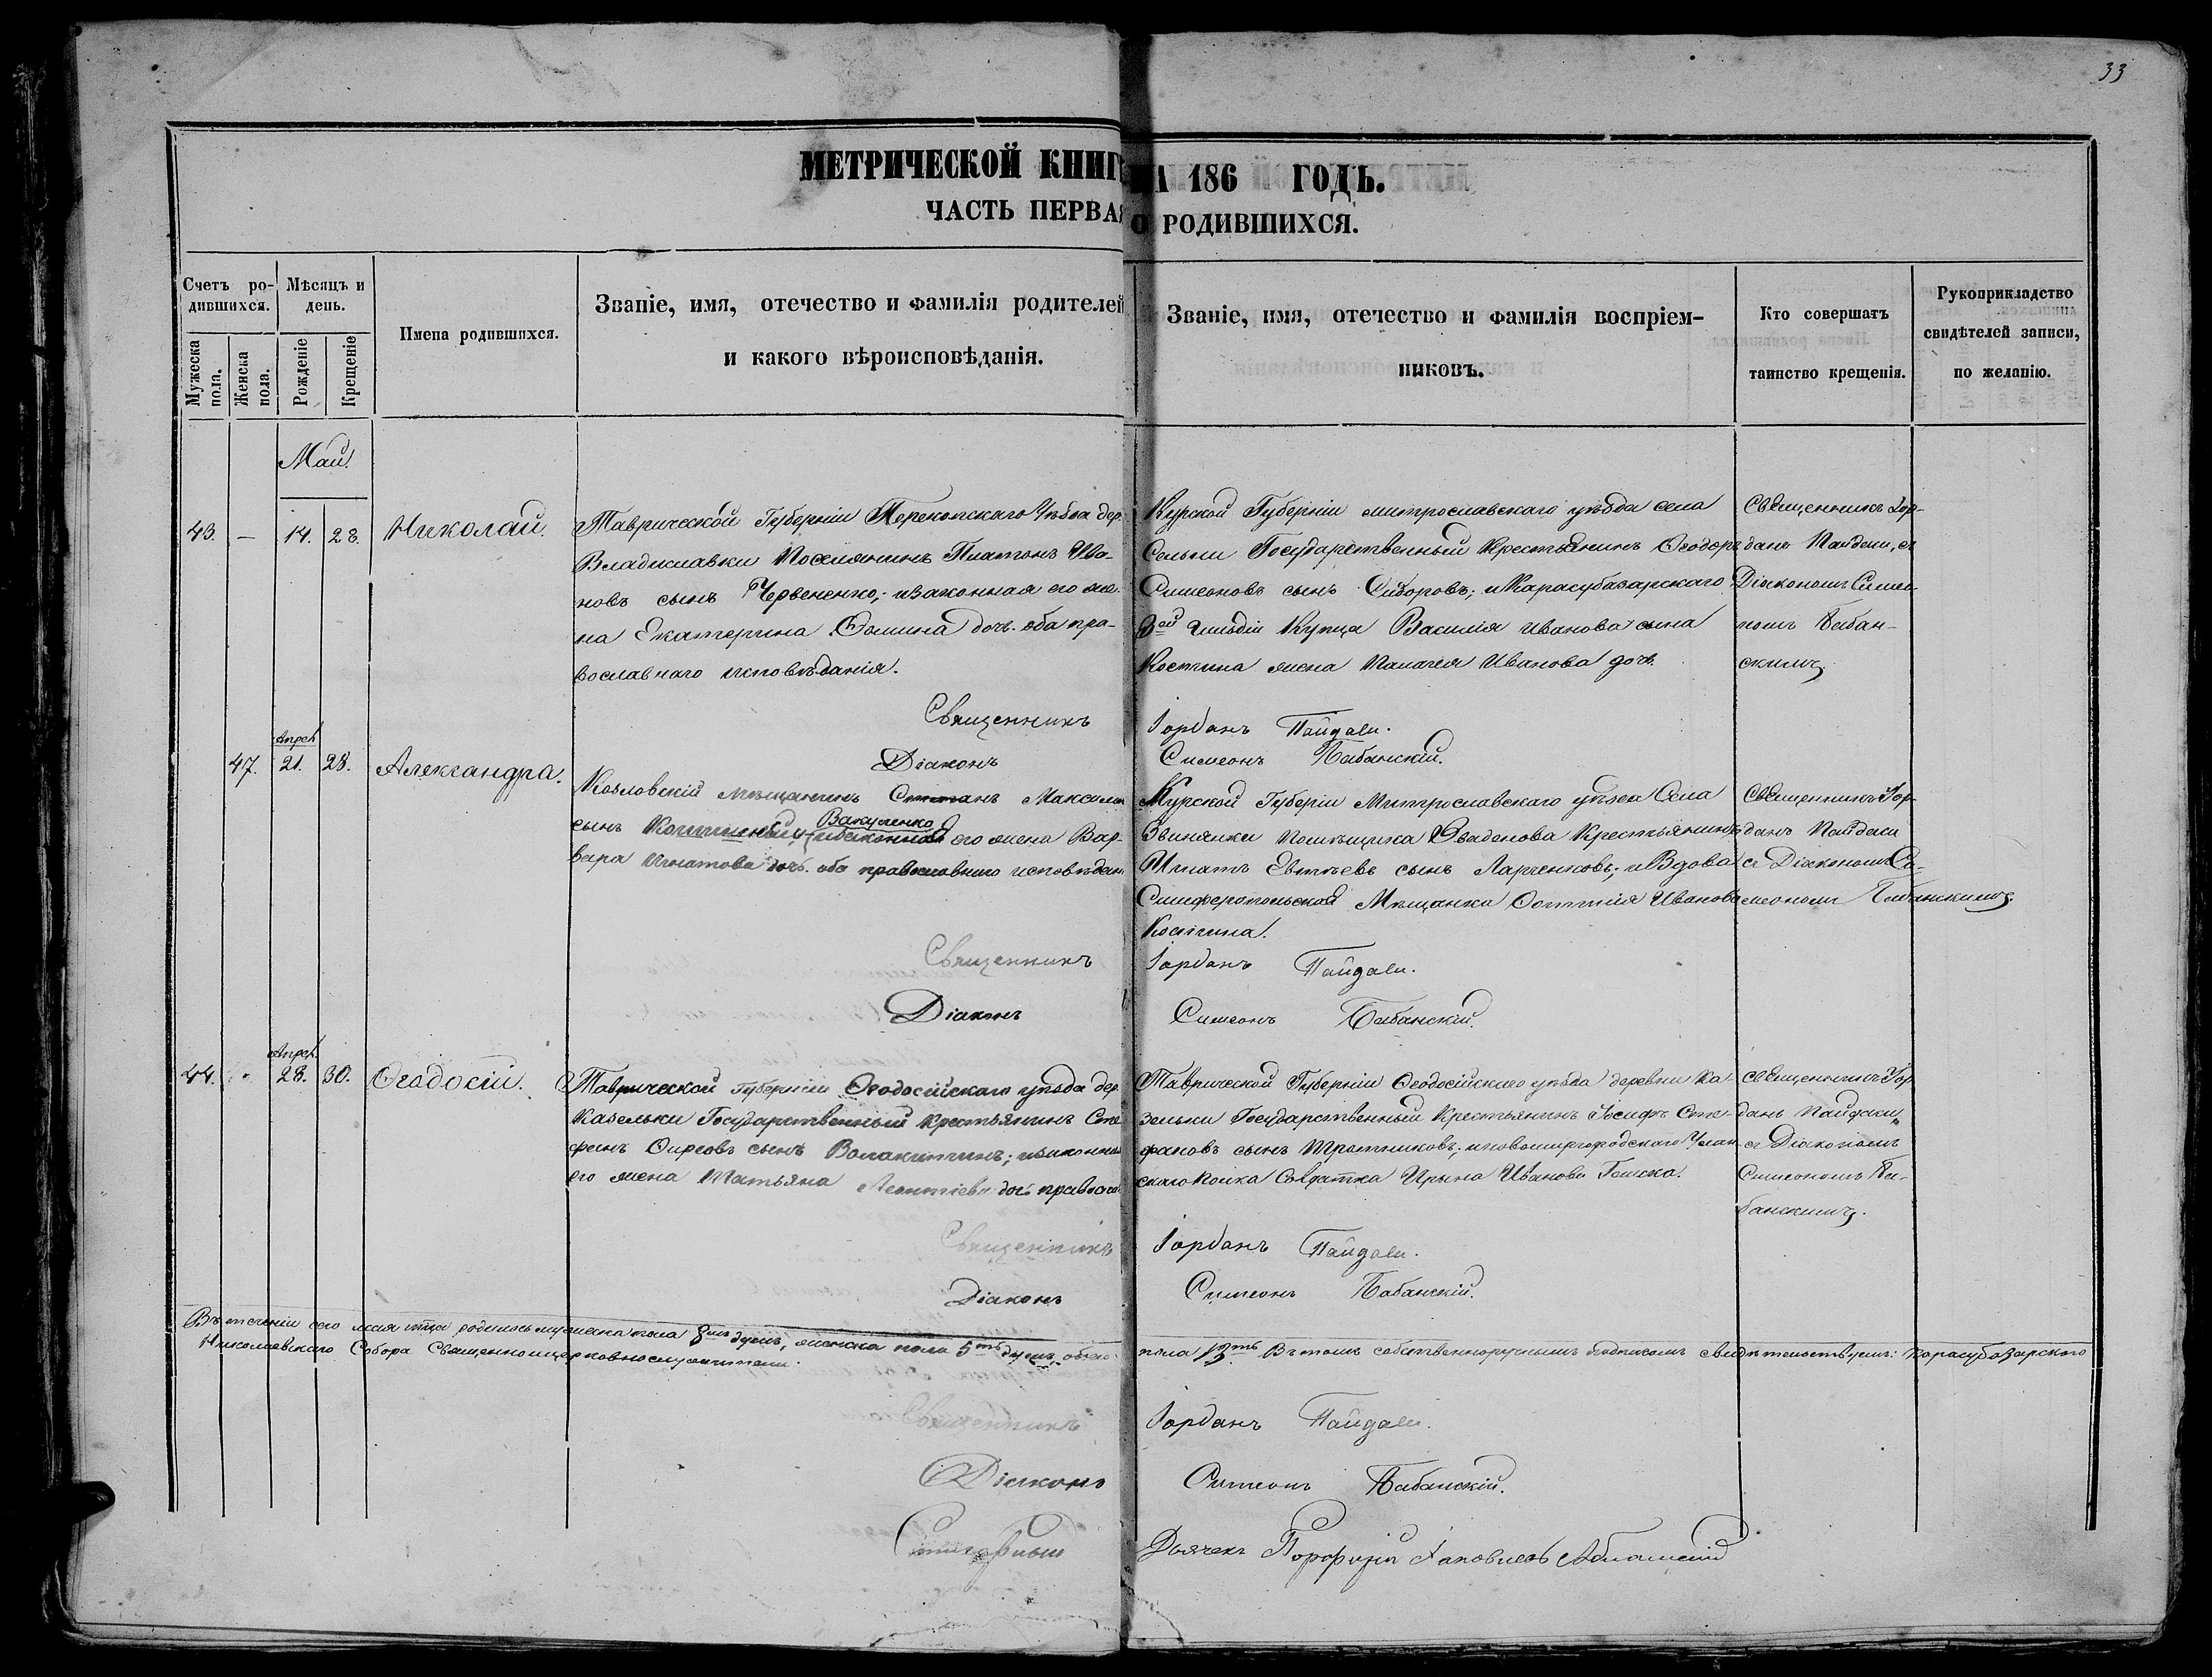 33
МЕТРИЧЕСКОЙ КНИГ НА 186 ГОДЪ.
ЧАСТЬ ПЕРВАЯ О РОДИВШИХСЯ.
Счетъ ро-
дившихся.
Мужеска пола.
Женска пола.
Мѣсяцъ и
день.
Рожденіе
Крещеніе
Имена родившихся.
Званіе, имя, отечество и фамилія родителей
и какого вѣроисповѣданія.
Званіе, имя, отечество и фамилія воспріем-
никовъ.
Кто совершалъ
таинство крещенія.
Рукоприкладство
свидѣтелей записи,
по желанію.
Май.
43. — 14. 28. Николай.
Таврической Губерніи Перекопскаго Уѣзда дер.
Владиславки Поселянинъ Платонъ Ива-
новъ сынъ Червененко; и законная его же-
на Екатерина Фомина доч. оба пра-
вославнаго исповѣданія.
Курской Губерніи митрославскаго уѣзда села
Сальни Государственный Крестьянинъ Ѳеодоръ
Симеоновъ сынъ Сидоровъ; и Карасубазарскаго
3ей гильдіи Купца Василія Иванова сына
Костина жена Палагея Иванова доч.
Священникъ Іор-
данъ Пайдаки, съ
Діакономъ Симео-
номъ Бабан-
скимъ
Священникъ Іорданъ Пайдали.
Діаконъ Симеонъ Бабанскій.
47. Апрел. 21. 28. Александра.
Козловскій мѣщанинъ Степанъ Максимо
сынъ Вакуленко и законная его жена Вар-
вара Игнатова доч. оба православнаго исповѣдан
Курской Губерніи Митрославскаго уѣзда Села
Звинянки помѣщика Крестьянинъ
Игнатъ Евтѣевъ сынъ Ларченковъ; и Вдова
Симферопольская Мѣщанка Иванова
Костина.
Священникъ Іор-
данъ Пайдали
съ Діакономъ Си-
меономъ Бабанскимъ.
Священникъ Іорданъ Пайдали.
Діаконъ Симеонъ Бабанскій.
44. Апрел. 28. 30. Ѳеодосій.
Таврической губерніи Ѳеодосійскаго уѣзда дер
Казельки Государственный Крестьянинъ Сте
фанъ сынъ Волакитинъ; и законная
его жена Татьяна Леонтіева доч. правосл
Таврической Губерніи Ѳеодосійскаго уѣзда деревни Ка-
зельки Государственный Крестьянинъ Іосифъ Сте-
фановъ сынъ Тротниковъ; и новомиргородскаго Улан-
скаго полка Солдатка Ирина Иванова
Священникъ Іор
данъ Пайдаки
съ Діакономъ
Симеономъ Ба-
банскимъ.
Священникъ Іорданъ Пайдали.
Діаконъ Симеонъ Бабанскій.
Въ теченіи сего мая мѣсяца родилось мужеска пола 8мь душъ, женска пола 5ть душъ, обоего пола 13ть. Въ томъ собственноручнымъ подписомъ свидѣтельствуемъ: Карасубазарскаго
Николаевскаго Собора Священноцерковнослужители.
Священникъ Іорданъ Пайдали.
Діаконъ Симеонъ Бабанскій.
Дьячекъ Порфирій